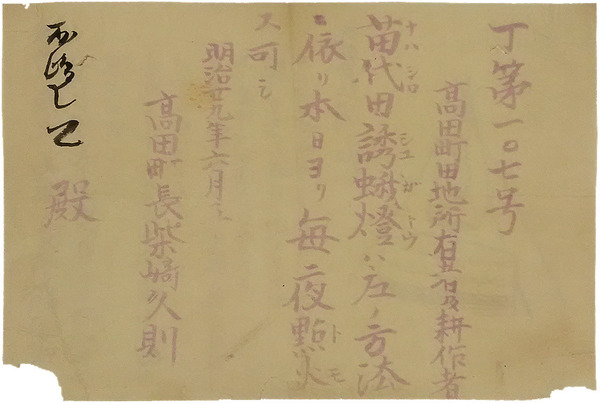 丁第一〇七号
高田町田地所有者及耕作者
苗代田誘蛾燈ハ左ノ方法
ナハシロ
シユガトウ
ニ依リ本日ヨリ毎夜點火
トモ
ス可シ
明治廿九年六月
高田町長柴崎久則
殿